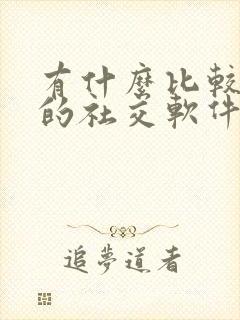 有什麼比較
的社交軟件
追夢道者